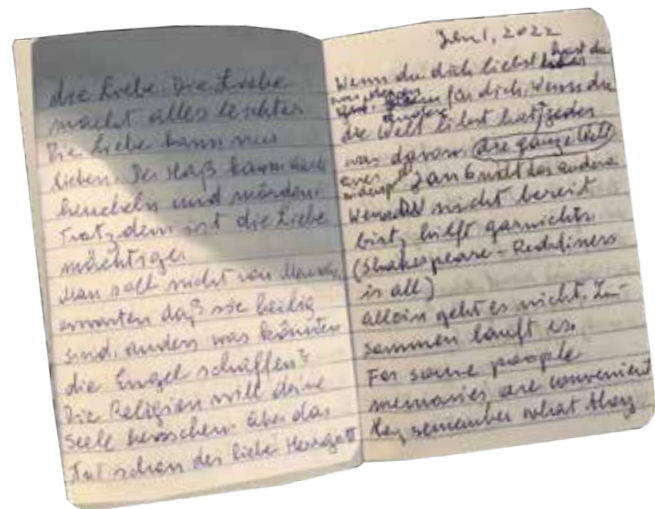 die Liebe. Die Liebe
macht alles leichter
Die Liebe kann nur
lieben. Der Haß kann auch
heucheln und mörden.
Trotzdem ist die Liebe
mächtiger
Man soll nicht von
erwarten daß sie heilig
sind, anders was könnten
die Engel schaffen?
Die Religion will deine
Seele herrschen über das
Tut schon der liebe Herrgott
Jan 1, 2022
Wenn du dich liebst hast du
was für dich. Wenn du
die Welt liebst hat jeder
was davon. die ganze Welt
das andere
Wenn du nicht bereit
bist, hilft garnichts
(Shakespeare - Reddiness
is all)
allein geht es nicht. Zu-
sammen lauft es.
For some people
memories are convenient
they remember what they